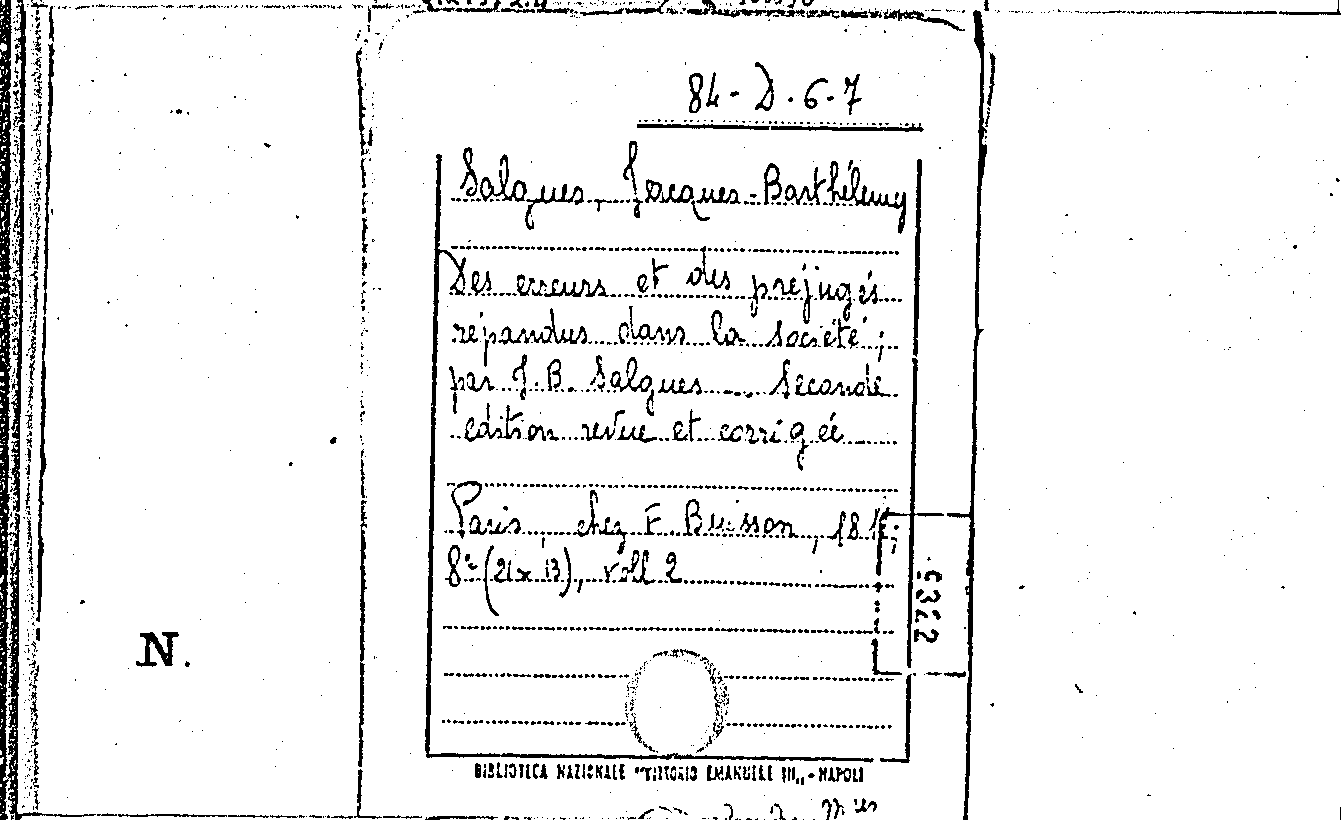 84-D.6-7
Salgues, Jacques-Barthélemy
Des erreurs et des préjugés
répandus dans la société;
par J.B. Salgues ... Seconde
edition revue et corrigée
Paris, chez F. Buisson,
8° (21x13), voll 2
N.
BIBLIOTECA NAZIONALE "VITTORIO EMANUELE III" - NAPOLI